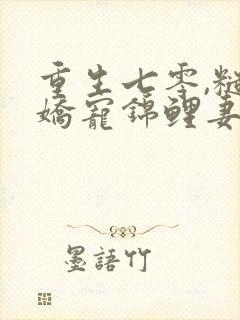 重生七零,糙
嬌寵錦鯉妻
墨語竹